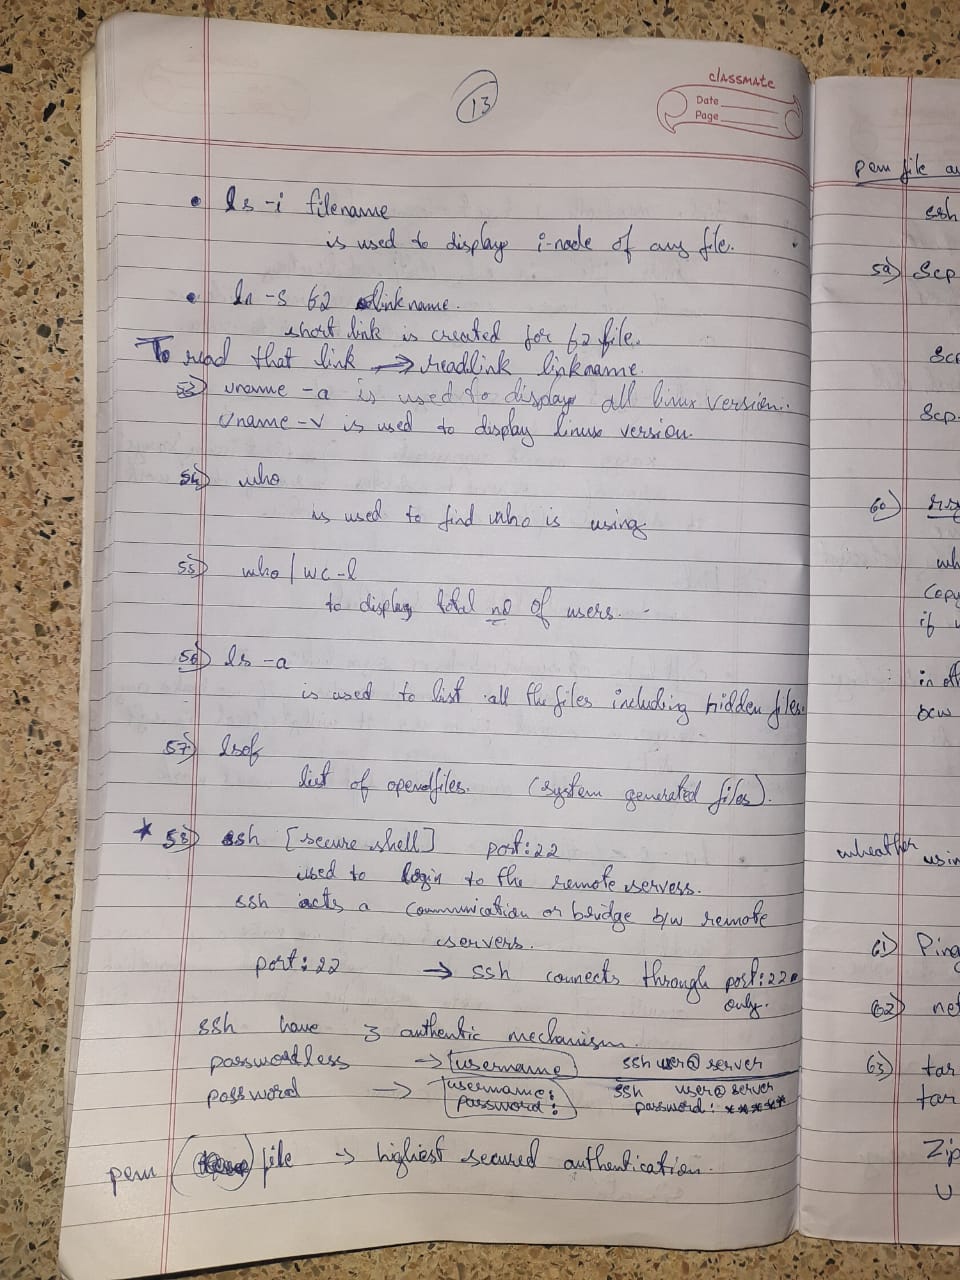 13
classmate
Date
Page
• ls -i filename
is used to display i-node of any file.
• ln -s f2 linkname.
short link is created for f2 file.
To read that link → readlink linkname.
53) uname -a is used to display all linux version..
Uname -v is used to display linux version.
54) who
is used to find who is using
55) who | wc -l
to display total no of users.
56) ls -a
is used to list all the files including hidden files.
57) lsof
list of opendfiles. (system generated files).
* 58) ssh [secure shell] port:22
used to login to the remote servess.
ssh acts a communication or bridge b/w remote
servers.
port:22 → ssh connects through port:22
only.
ssh have 3 authentic mechanism.
passwordless → username ssh user@server
password → username: ssh user@server
password: password: ******
pem file → highest secured authentication.
pem file
ssh
59) Scp
Scp
Scp
60)
wh
Copy
if
in
bcw
wheather usin
61) Ping
62) net
63) tar
tar
Zip
U